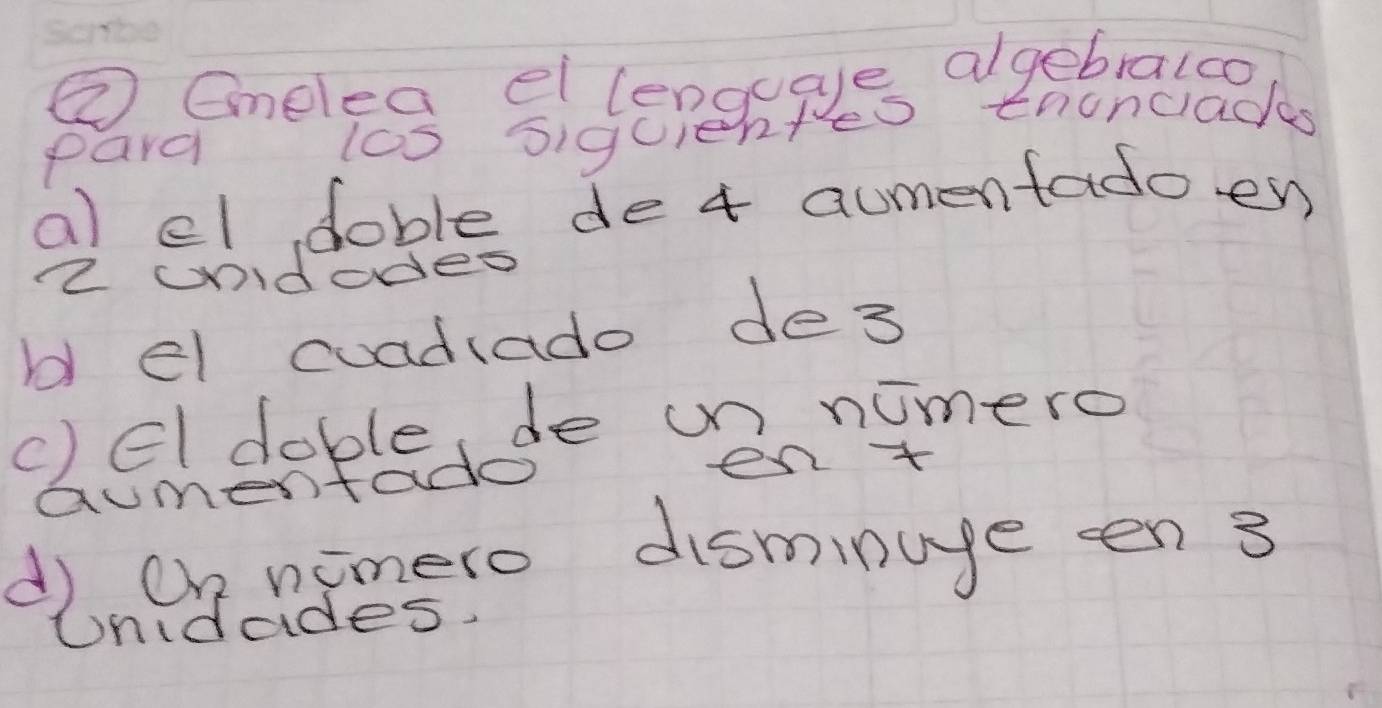 Scribe
② Emelea el lenguaje algebraico,
para los siguientes enunciados
a) el doble de 4 aumentado en
2 unidades
b) el cuadrado de 3
c) El doble de un número
aumentado en 7
d) Un número disminuye en 3
Unidades.